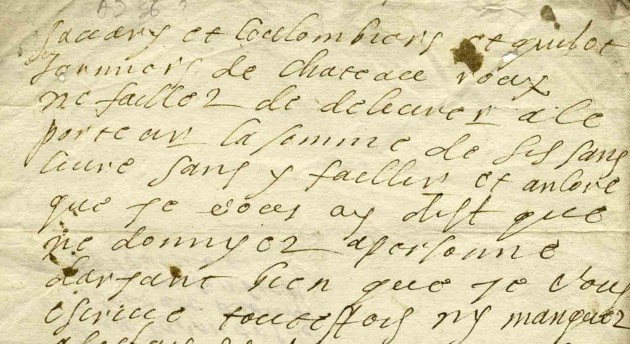 et Coulombiers et guibet
fermiers de chateau roux
ne failles de delivrer a le
porteur la somme de sis sans
livre sans y faillir et ancore
que je vous ay dist que
ne donnyez apersonne
dargant bien que je vous
escrive toutesfois ny manquez